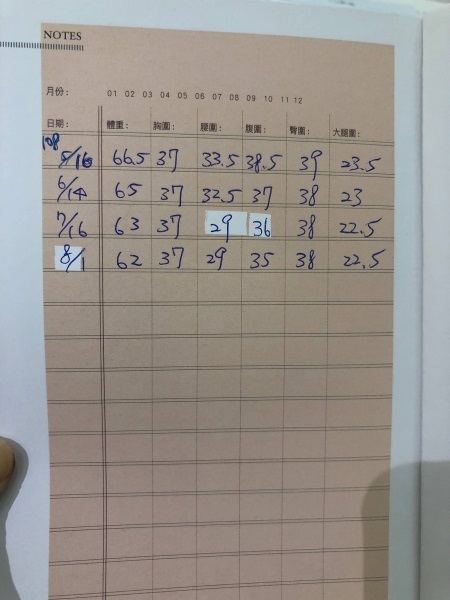 NOTES
月份： 01 02 03 04 05 06 07 08 09 10 11 12
日期： 體重： 胸圍： 腰圍： 腹圍： 臀圍： 大腿圍：
108
5/16 66.5 37 33.5 38.5 39 23.5
6/14 65 37 32.5 37 38 23
7/16 63 37 29 36 38 22.5
8/1 62 37 29 35 38 22.5